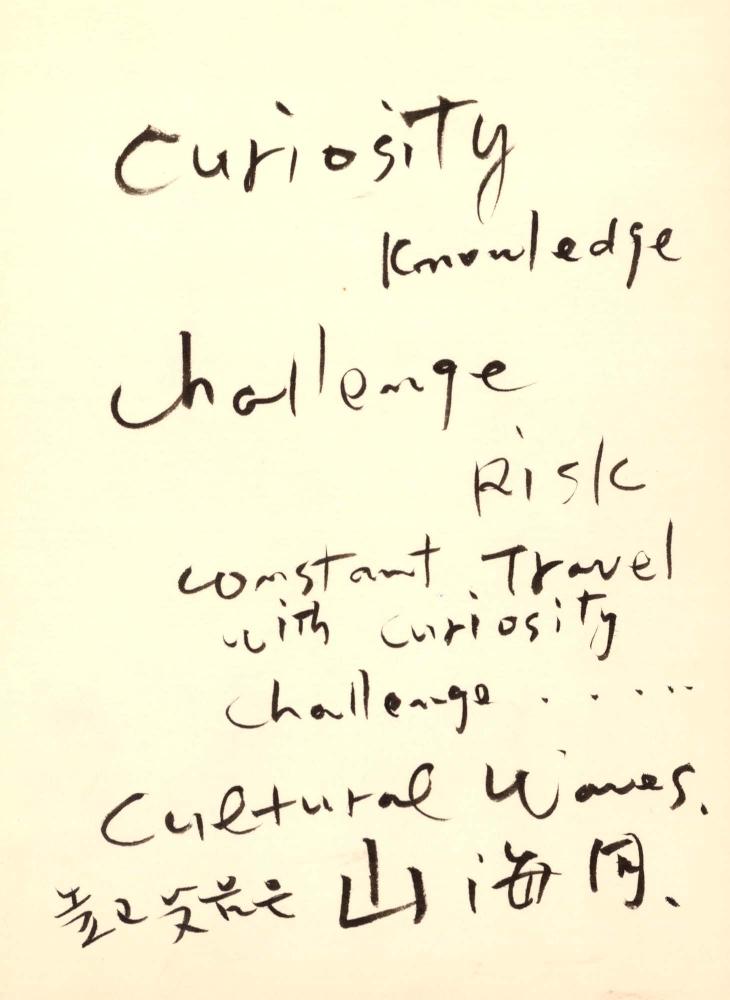 Curiosity
Knowledge
Challenge
Risk
constant Travel
with curiosity
challenge . . . . . .
Cultural Waves.
높고 낮음은 山 海 同.